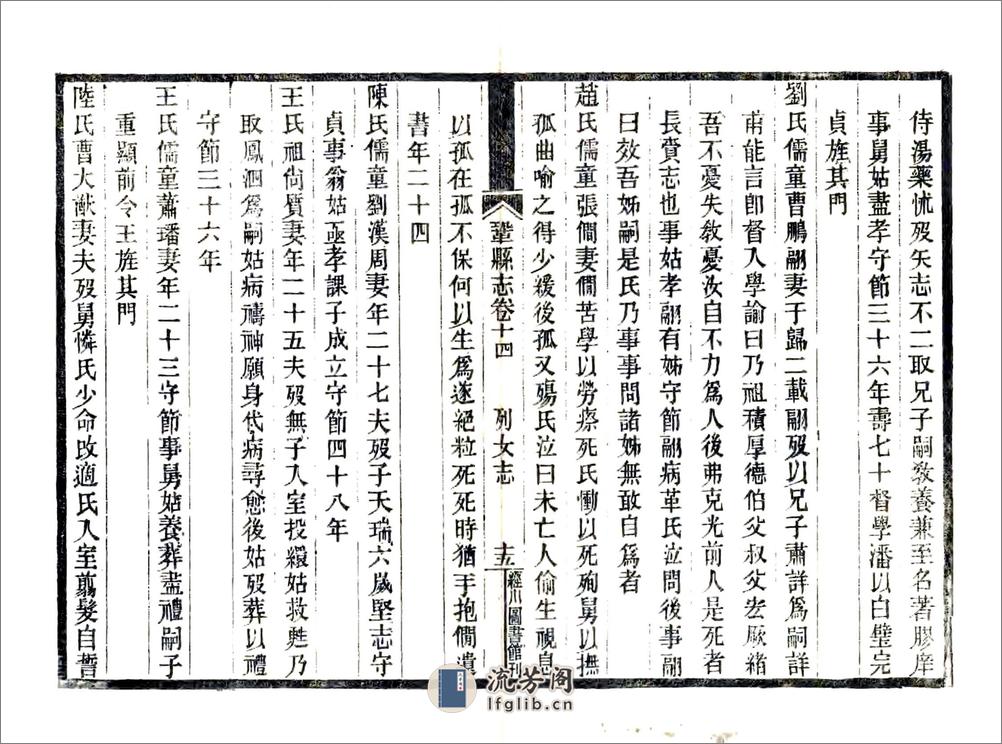 侍湯藥怵歿矢志不二取兄子嗣敎養兼至名著膠庠
事舅姑盡孝守節三十六年壽七十督學潘以白璧完
貞旌其門
劉氏儒童曹鵬翮妻于歸二載翮歿以兄子肅詳爲嗣詳
甫能言卽督入學諭曰乃祖積厚德伯父叔父宏厥緒
吾不憂失敎憂汝自不力爲人後弗克光前人是死者
長賫志也事姑孝翮有姊守節翮病革氏泣問後事翮
曰效吾姊嗣是氏乃事事問諸姊無敢自爲者
趙氏儒童張僩妻僩苦學以勞瘵死氏慟以死殉舅以撫
孤曲喻之得少緩後孤又殤氏泣曰未亡人偷生視息
鞏縣志卷十四 列女志 十五 經川圖書館刊
以孤在孤不保何以生爲遂絕粒死死時猶手抱僩遺
書年二十四
陳氏儒童劉漢周妻年二十七夫歿子天瑞六歲堅志守
貞事翁姑亟孝課子成立守節四十八年
王氏祖尙質妻年二十五夫歿無子入室投繯姑救甦乃
取鳳泗爲嗣姑病禱神願身代病尋愈後姑歿葬以禮
守節三十六年
王氏儒童蕭璠妻年二十三守節事舅姑養葬盡禮嗣子
重顯前令王旌其門
陸氏曹大猷妻夫歿舅憐氏少命改適氏入室翦髮自誓
流芳阁
lfglib.cn